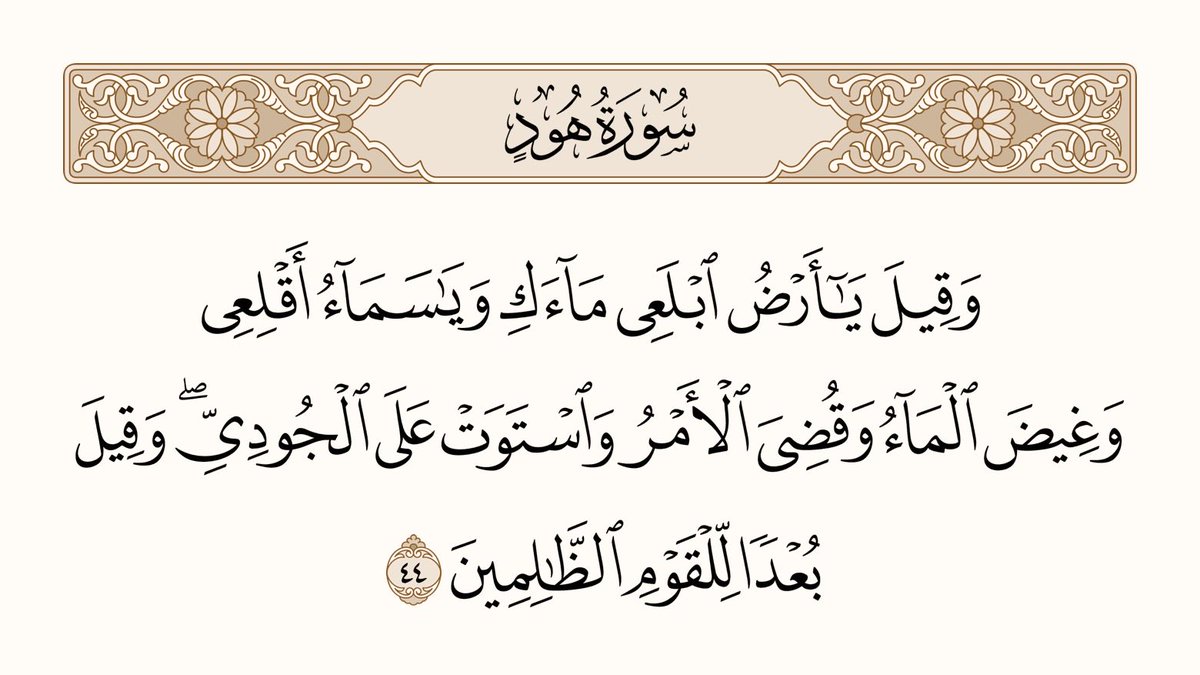 سُورَةُ هُودٍ
وَقِيلَ يَـٰٓأَرْضُ ٱبْلَعِى مَآءَكِ وَيَـٰسَمَآءُ أَقْلِعِى
وَغِيضَ ٱلْمَآءُ وَقُضِىَ ٱلْأَمْرُ وَٱسْتَوَتْ عَلَى ٱلْجُودِىِّ ۖ وَقِيلَ
بُعْدًا لِّلْقَوْمِ ٱلظَّـٰلِمِينَ ٤٤